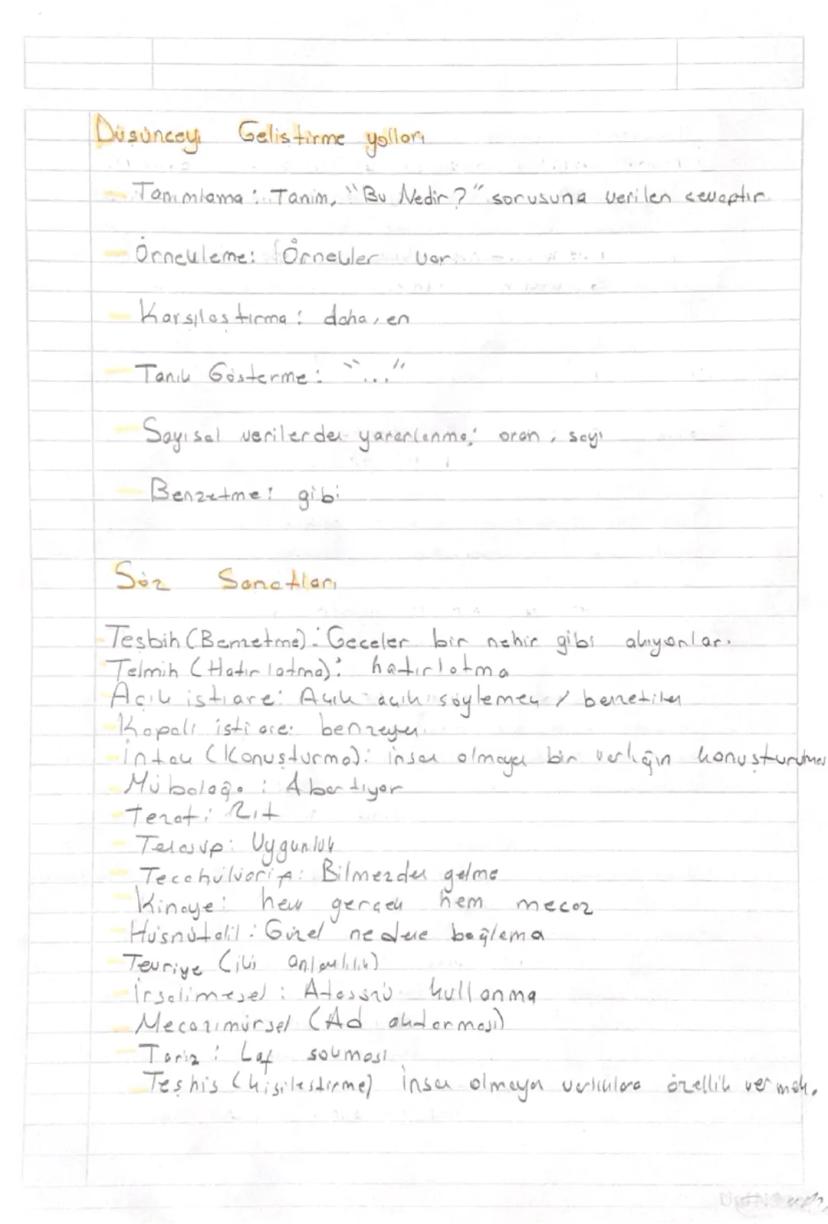 Düşünceyi Geliştirme yolları
- Tanımlama: Tanım, "Bu Nedir?" sorusuna verilen cevaptır
- Örnekleme: Örnekler var
- Karşılaştırma: daha, en
- Tanık Gösterme: "..."
- Sayısal verilerden yararlanma: oran, sayı
- Benzetme: gibi
Söz Sanatları
- Teşbih (Benzetme): Geceler bir nehir gibi akıyorlar.
- Telmih (Hatırlatma): hatırlatma
- Açık istiare: Açık açık söylemek / benzetilen
- Kapalı istiare: benzeyen
- İntak (Konuşturma): insan olmayan bir varlığın konuşturulması
- Mübalağa: Abartıyor
- Tezat: Zıt
- Tenasup: Uygunluk
- Tecahülüarif: Bilmezden gelme
- Kinaye: hem gerçek hem mecaz
- Hüsnütalil: Güzel nedene bağlama
- Tevriye (iki anlamlılık)
- İrsalimesel: Atasözü kullanma
- Mecazımürsel (Ad aktarması)
- Tariz: Laf sokması
- Teşhis (kişileştirme) İnsan olmayan varlıklara özellik vermek.